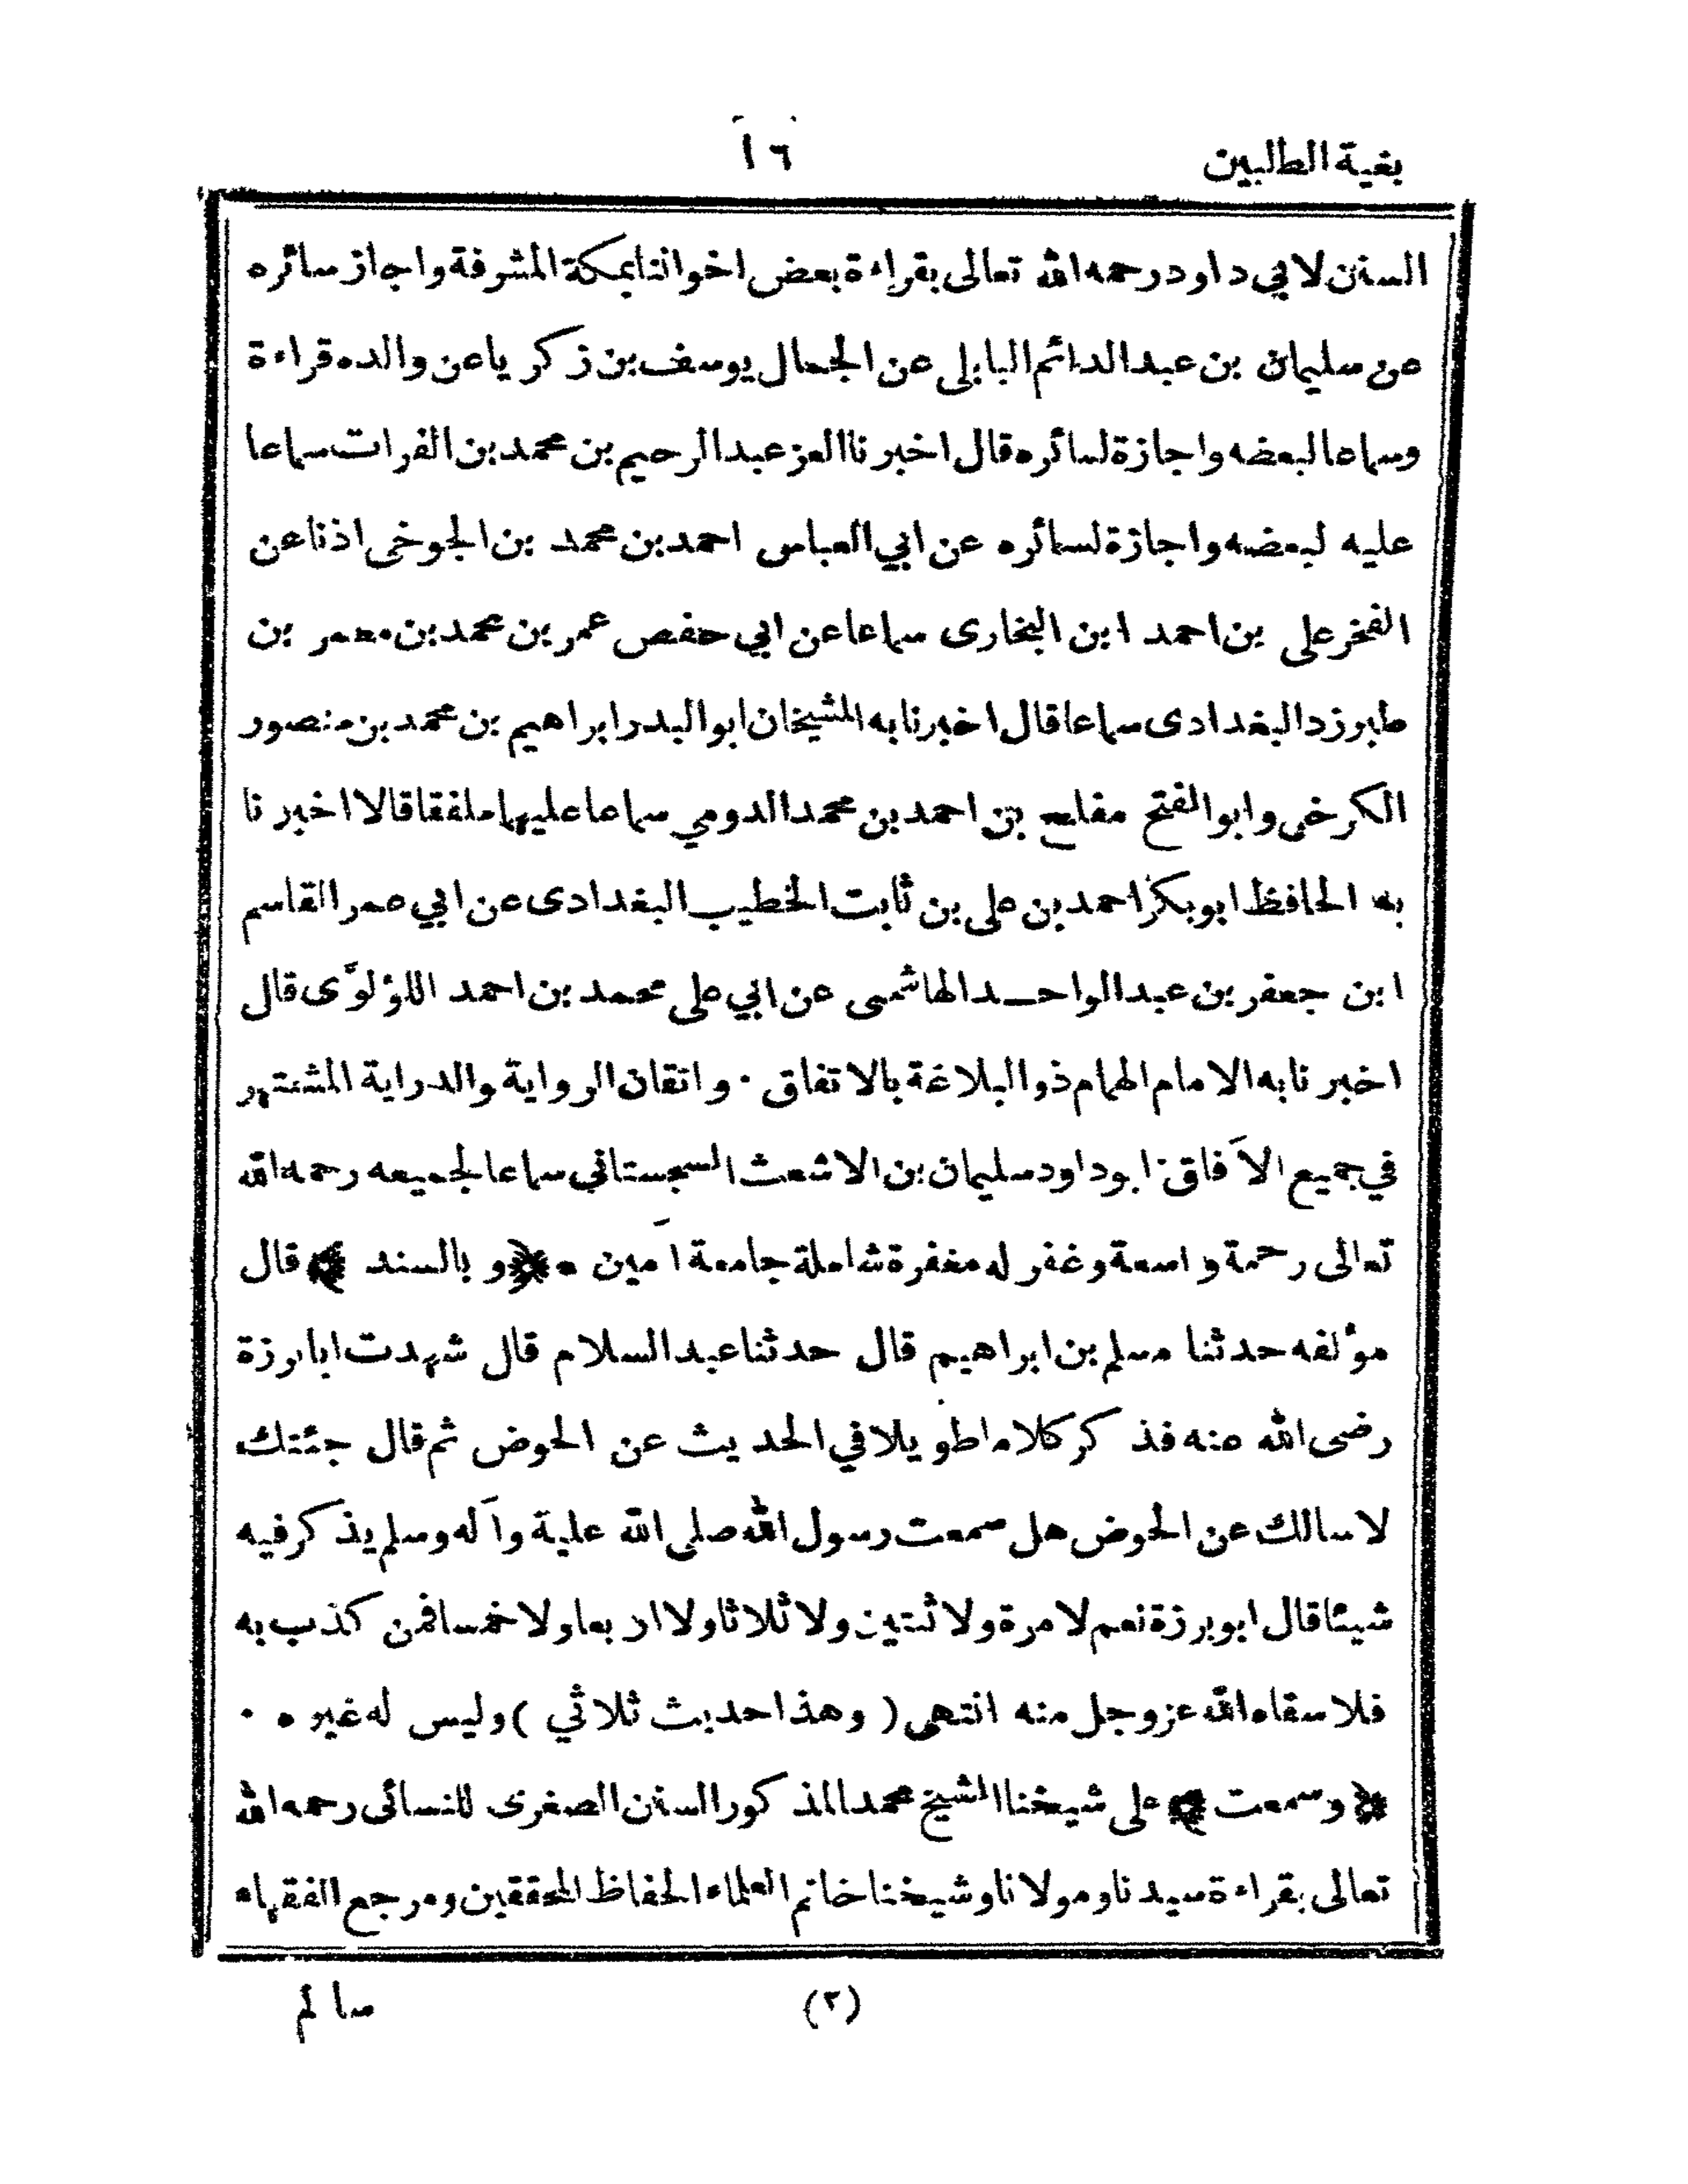 بغية الطالبين
١٦
السنن لابي داود رحمه الله تعالى بقراءة بعض اخواننا بمكة المشرفة واجاز سائره
عن سليمان بن عبد الدائم البابلى عن الجمال يوسف بن زكريا عن والده قراءة
وسماعا لبعضه واجازة لسائره قال اخبرنا العز عبد الرحيم بن محمد بن الفرات سماعا
عليه لبعضه واجازة لسائره عن ابي العباس احمد بن محمد بن الجوخى اذنا عن
الفخر على بن احمد ابن البخارى سماعا عن ابي حفص عمر بن محمد بن معمر بن
طبرزد البغدادى سماعا قال اخبرنا به الشيخان ابو البدر ابراهيم بن محمد بن منصور
الكرخى وابو الفتح مفلح بن احمد بن محمد الدومي سماعا عليهما ملفقا قالا اخبرنا
به الحافظ ابو بكر احمد بن على بن ثابت الخطيب البغدادى عن ابي عمر القاسم
ابن جعفر بن عبد الواحد الهاشمى عن ابي على محمد بن احمد اللؤلوئى قال
اخبرنا به الامام الهمام ذو البلاغة بالاتفاق ٠ واتقان الرواية والدراية المشتهر
في جميع الآفاق ابو داود سليمان بن الاشعث السجستاني سماعا لجميعه رحمه الله
تعالى رحمة واسعة وغفر له مغفرة شاملة جامعة آمين ﴿ وبالسند ﴾ قال
مؤلفه حدثنا مسلم بن ابراهيم قال حدثنا عبد السلام قال شهدت ابا برزة
رضى الله عنه فذكر كلاما طويلا في الحديث عن الحوض ثم قال جئتك
لاسالك عن الحوض هل سمعت رسول الله صلى الله علية وآله وسلم يذكر فيه
شيئا قال ابو برزة نعم لا مرة ولا ثنتين ولا ثلاثا ولا اربعا ولا خمسا فمن كذب به
فلا سقاه الله عز وجل منه انتهى ( وهذا حديث ثلاثي ) وليس له غيره ٠
﴿ وسمعت ﴾ على شيخنا الشيخ محمد المذكور السنن الصغرى للنسائى رحمه الله
تعالى بقراءة سيدنا ومولانا وشيخنا خاتم العلماء الحفاظ المحققين ومرجع الفقهاء
(٢)
سالم